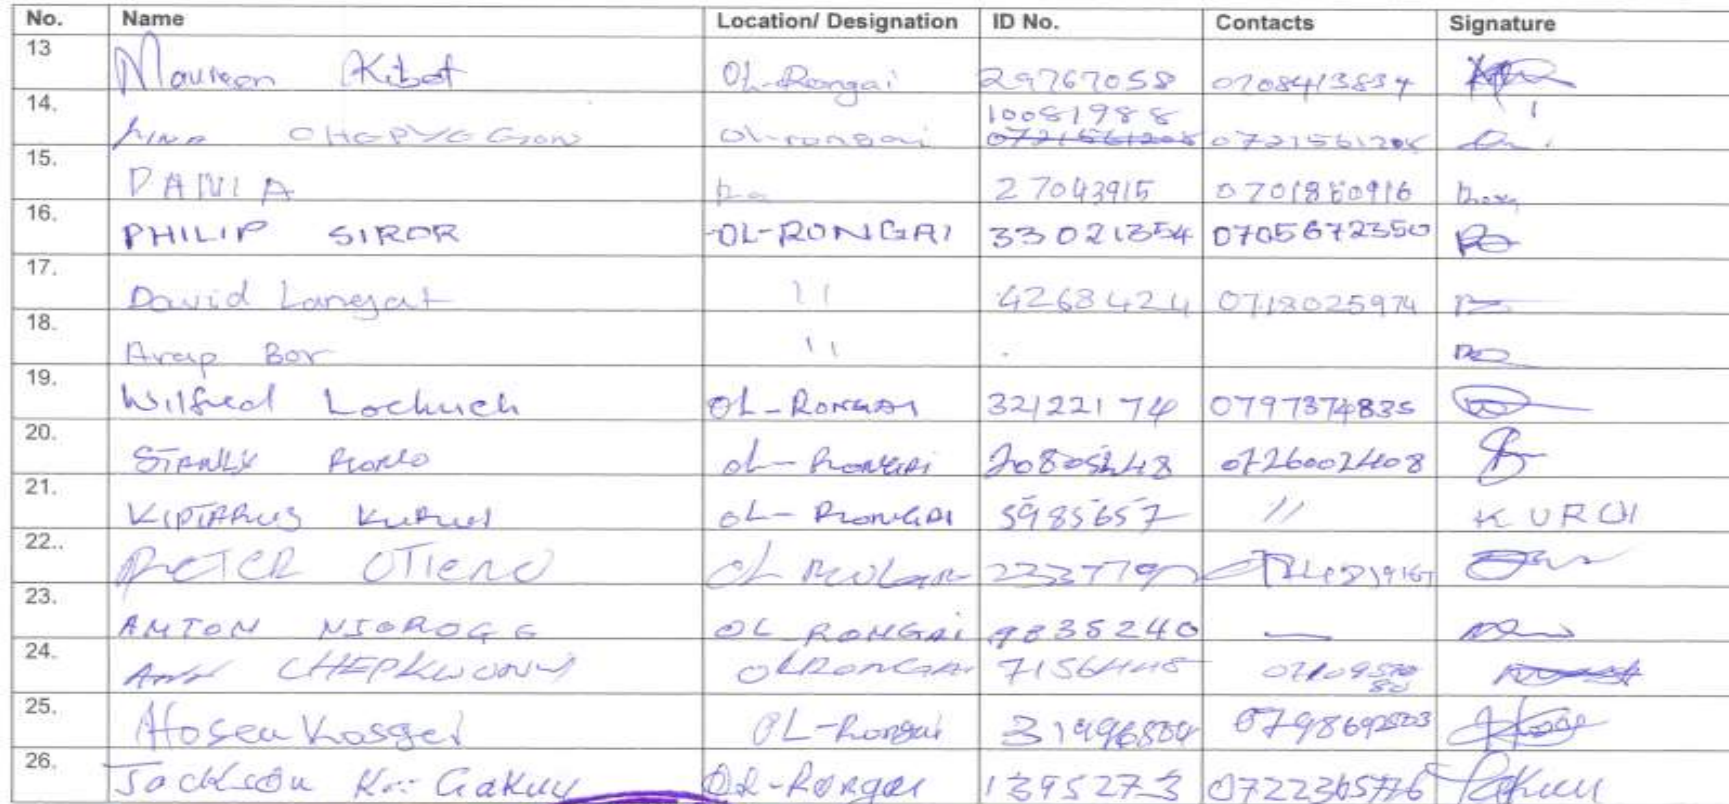 No. Name Location/ Designation ID No. Contacts Signature
13 Maureen Kibet Ol-Rongai 29767058 0708413834
14. CHEPYEGON Ol-rongai 10081988 0721561208 0721561208
15. DANIA 27043915 0701860916
16. PHILIP SIROR OL-RONGAI 33021354 0705672350
17. David Langat 11 4268424 0718025974
18. Arap Bor 11
19. Wilfred Lochuch OL-RONGAI 32122174 0797374835
20. STANLY OL-RONGAI 0726002408
21. OL-RONGAI 5985657 11 KURUI
22.. PETER OTIENO OL
23. ANTON NJOROGE OL RONGAI 9835240 —
24. Ann CHEPKWONY OLRONGAI
25. Hosea Kosgei OL-Rongai 0798692503
26. Jackson Gakuu OL-Rongai 13952773 0722365776